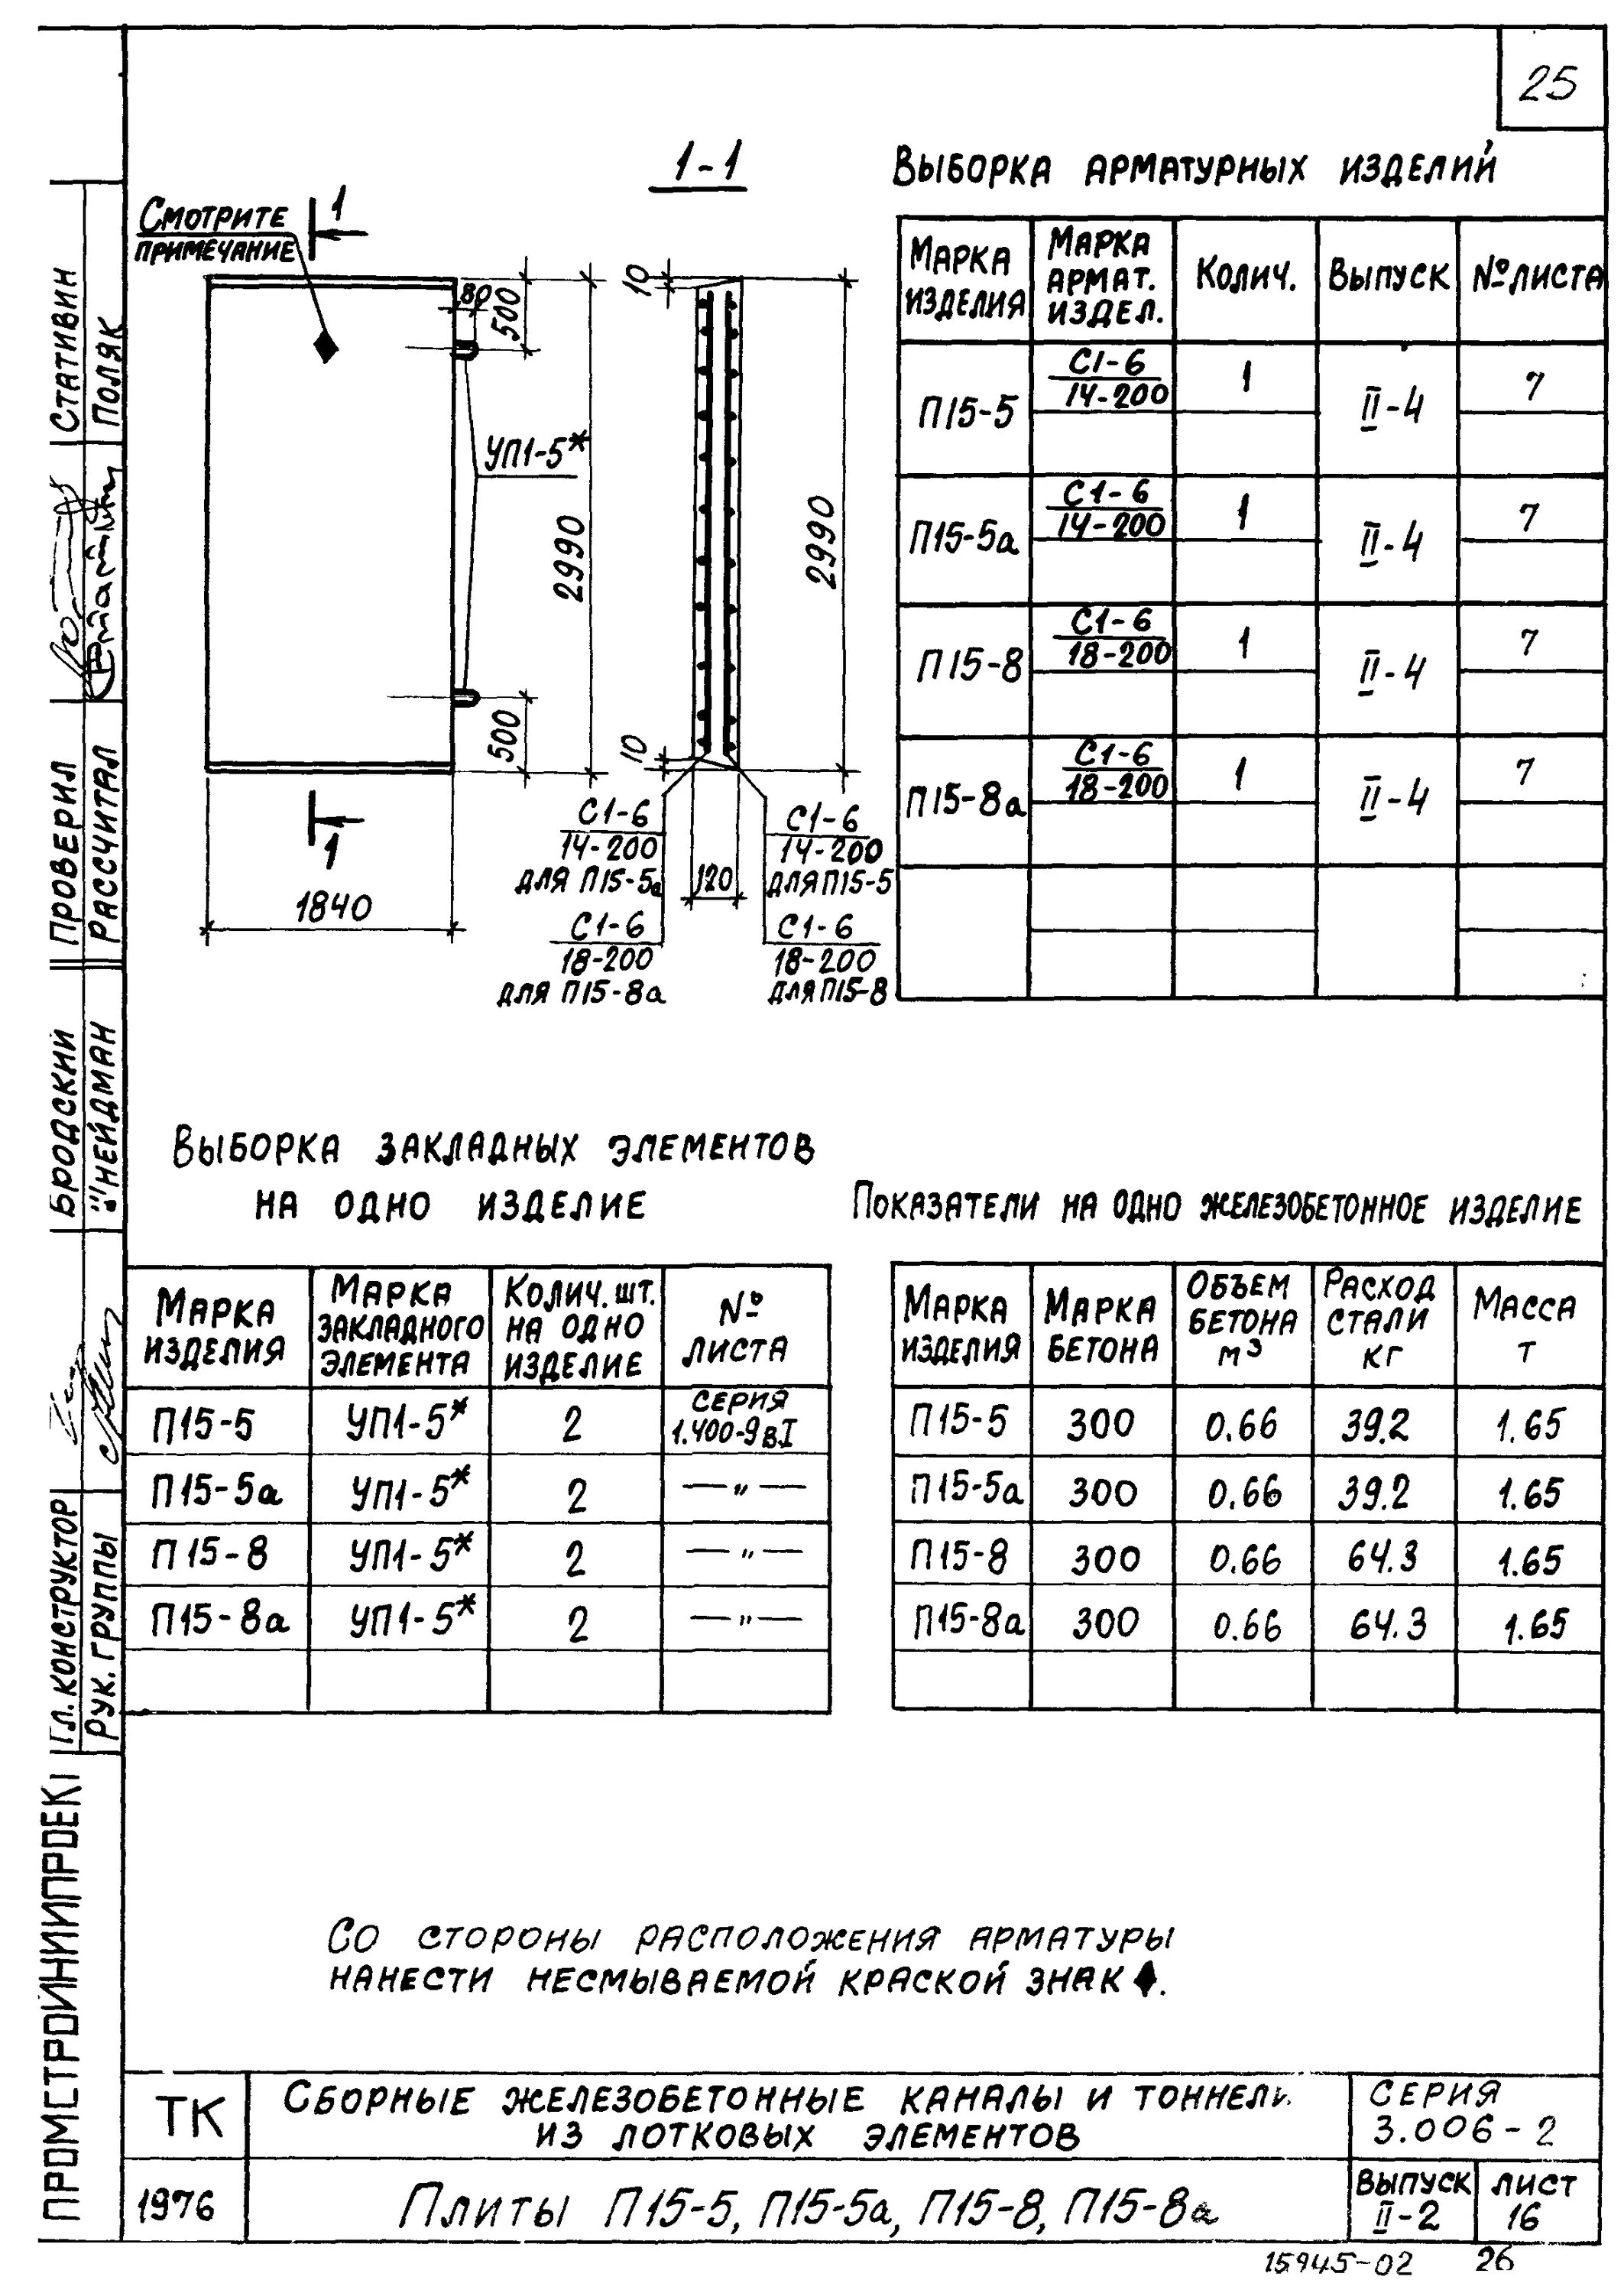 25
1-1
Смотрите
примечание
1
1
80
500
500
2990
УП1-5*
1840
10
10
2990
120
С1-6
14-200
для П15-5а
С1-6
18-200
для П15-8а
С1-6
14-200
для П15-5
С1-6
18-200
для П15-8
Выборка арматурных изделий
Марка изделия Марка армат. издел. Колич. Выпуск № листа
П15-5 С1-6/14-200 1 II-4 7
П15-5а С1-6/14-200 1 II-4 7
П15-8 С1-6/18-200 1 II-4 7
П15-8а С1-6/18-200 1 II-4 7
Выборка закладных элементов
на одно изделие
Марка изделия Марка закладного элемента Колич. шт. на одно изделие № листа
П15-5 УП1-5* 2 серия 1.400-9 в.I
П15-5а УП1-5* 2 — " —
П15-8 УП1-5* 2 — " —
П15-8а УП1-5* 2 — " —
Показатели на одно железобетонное изделие
Марка изделия Марка бетона Объем бетона м³ Расход стали кг Масса т
П15-5 300 0.66 39.2 1.65
П15-5а 300 0.66 39.2 1.65
П15-8 300 0.66 64.3 1.65
П15-8а 300 0.66 64.3 1.65
Со стороны расположения арматуры
нанести несмываемой краской знак ♦.
ТК
1976
Сборные железобетонные каналы и тоннели
из лотковых элементов
Плиты П15-5, П15-5а, П15-8, П15-8а
серия
3.006-2
выпуск
II-2
лист
16
15945-02 26
ПРОМСТРОЙНИИПРОЕКТ
Гл. конструктор Бродский
Рук. группы Нейдман
Проверил Стативин
Рассчитал Поляк